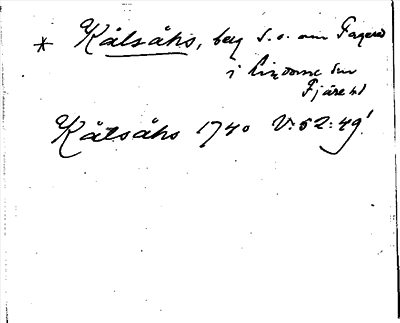 * Kålsåhs, berg S.o. om Fagered
i Lindome sn
Fjäre hd
Kålsåhs 1740 V:52:49!